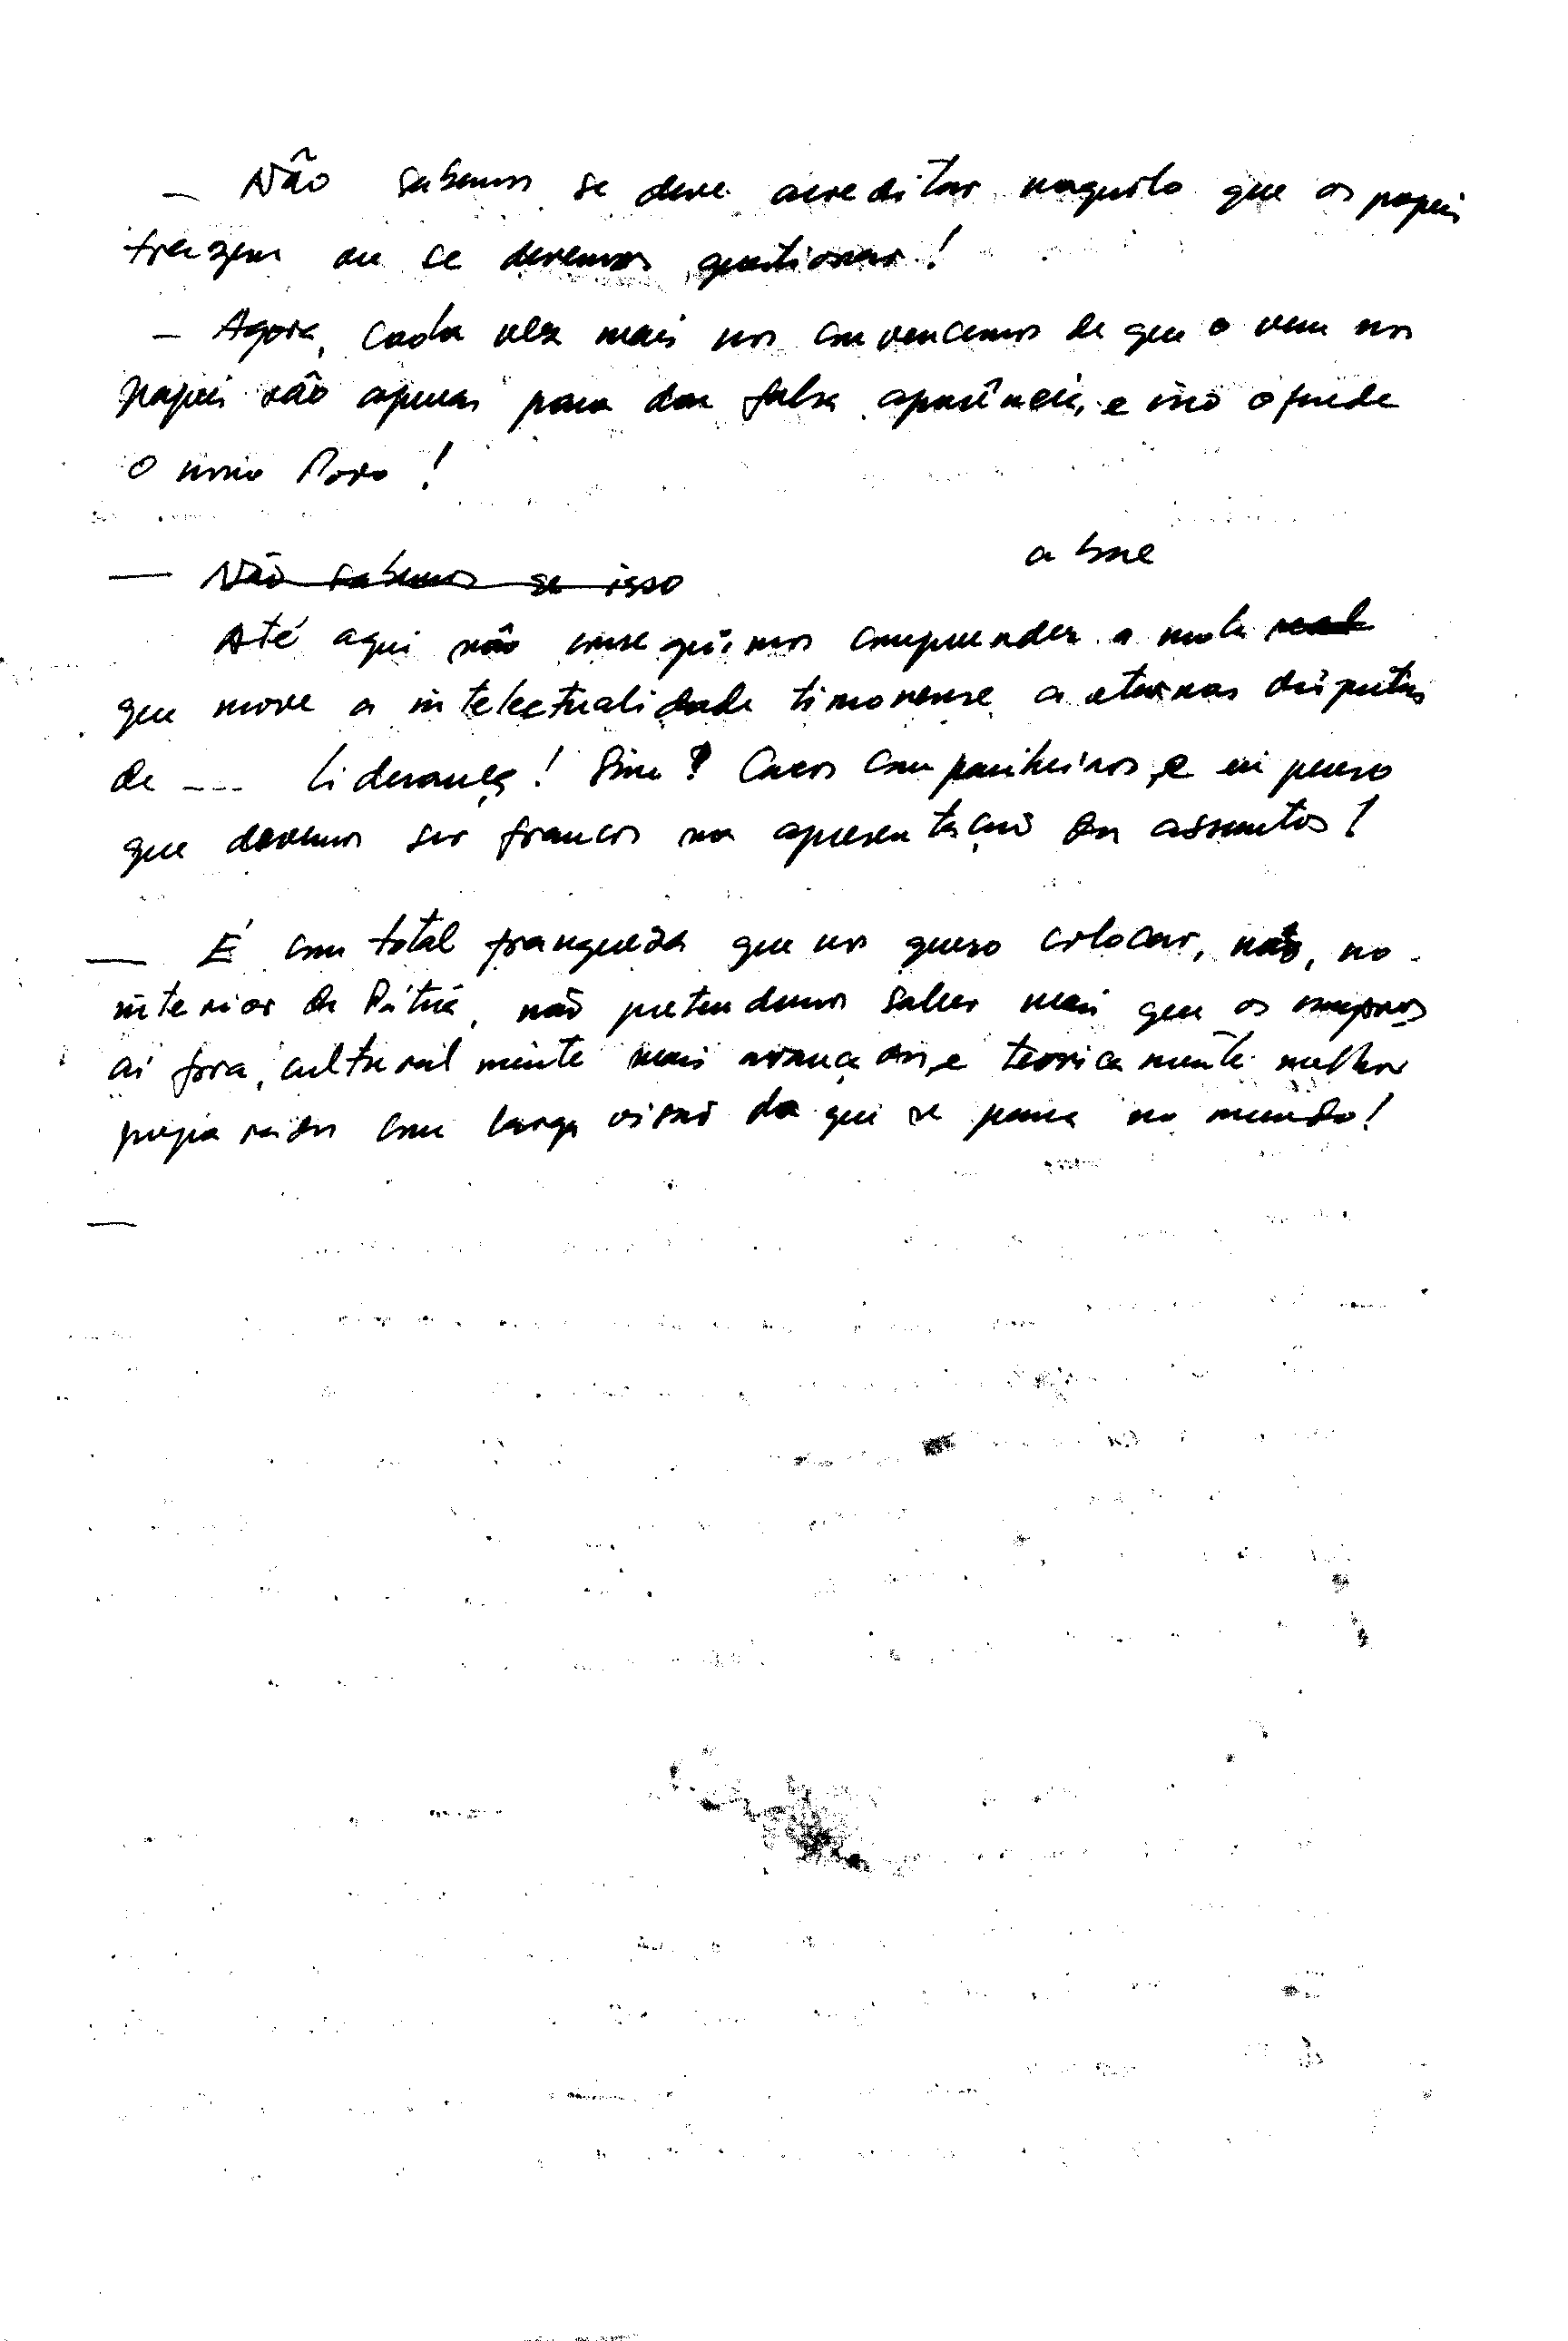 — Não sabemos se deve acreditar naquilo que os papeis
trazem ou se devemos questionar!
— Agora, cada vez mais nos convencemos de que o vem nos
papeis são apenas para dar falsa aparência, e isso ofende
o nosso Povo!
— Não sabemos se isso
a base
Até aqui não conseguimos compreender a mola real
que move a intelectualidade timorense a eternas disputas
de --- liderança! Sim? Caros companheiros, e eu penso
que devemos ser francos na apresentação dos assuntos!
— É com total franqueza que vos quero colocar, nós, no
interior da Pátria, não pretendemos saber mais que os
aí fora, culturalmente mais avançados, e teoricamente melhor
preparados com larga visão do que se passa no mundo!
—